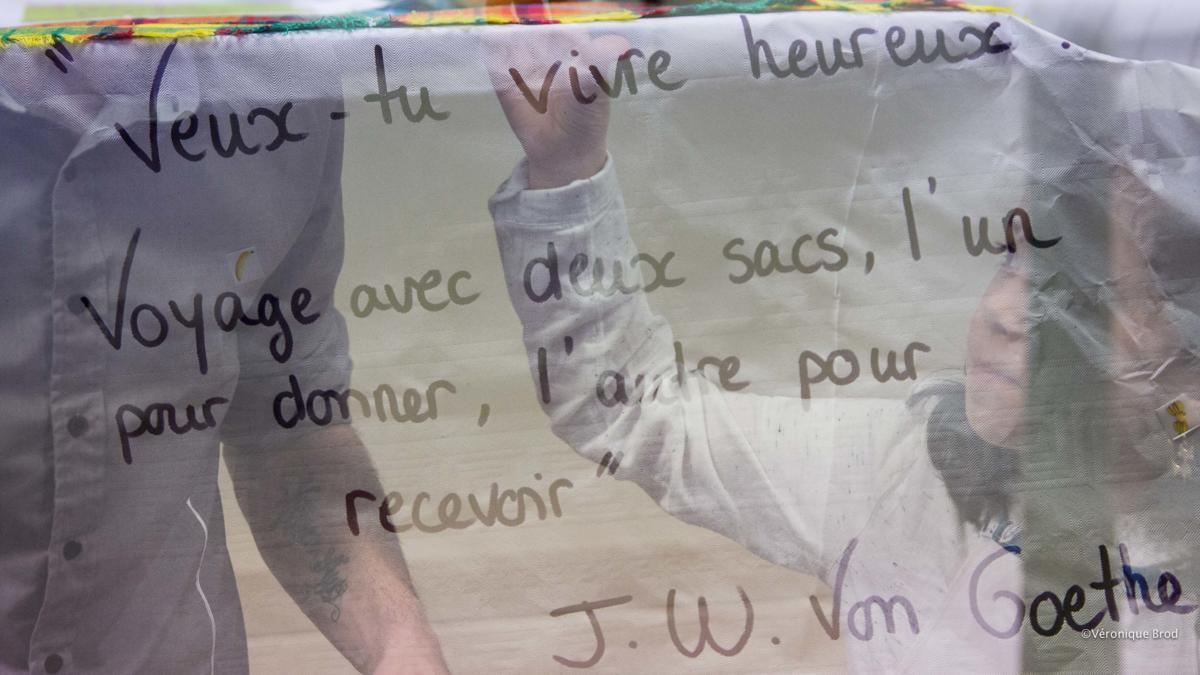 " Veux-tu vivre heureux.
Voyage avec deux sacs, l'un
pour donner, l'autre pour
recevoir"
J. W. Von Goethe
©Véronique Brod